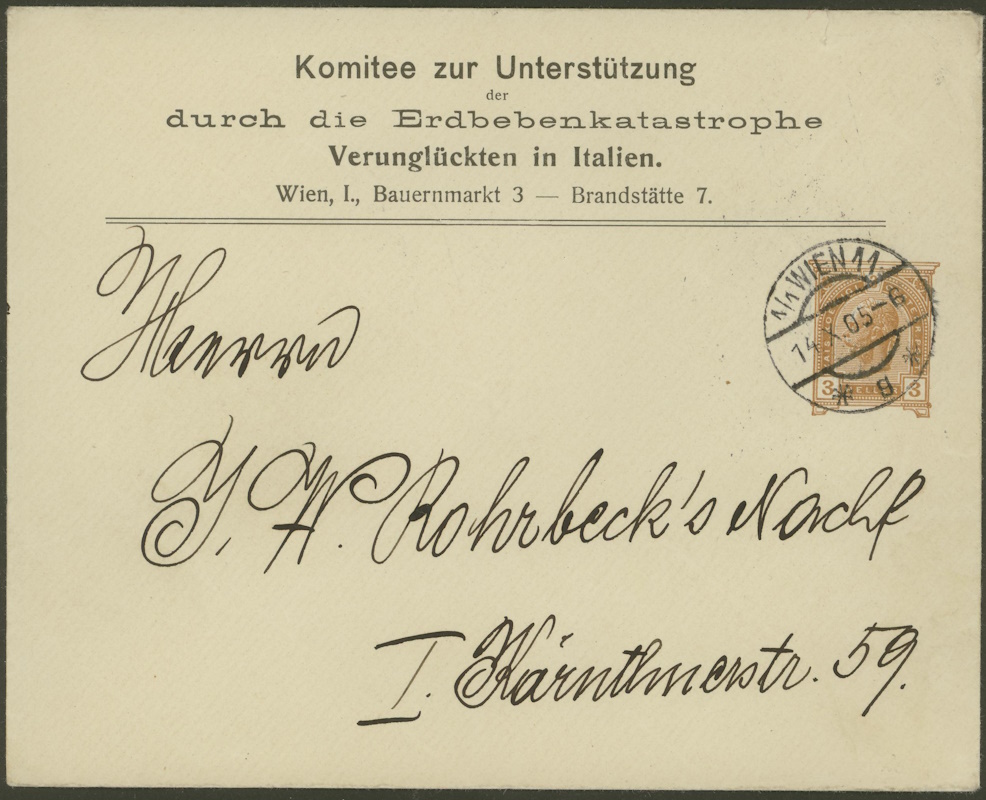 Komitee zur Unterstützung
der
durch die Erdbebenkatastrophe
Verunglückten in Italien.
Wien, I., Bauernmarkt 3 — Brandstätte 7.
1/1 WIEN 11
14.X.05-6
* g *
3 3
Herrn
W. Rohrbeck's Nachf
I. Kärnthnerstr. 59.